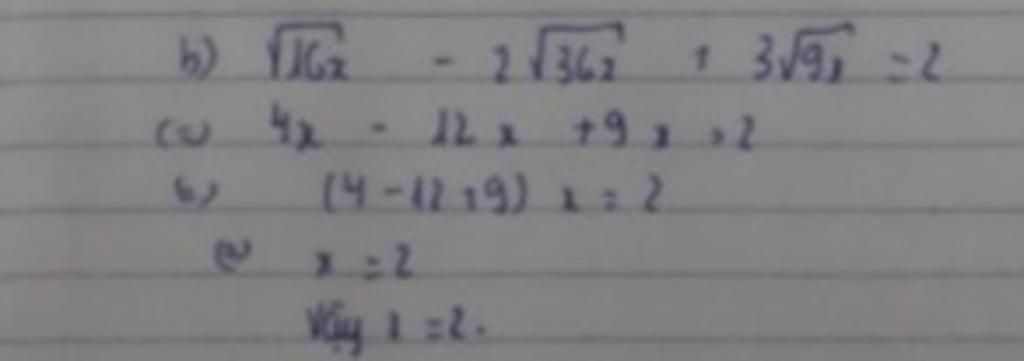 b) √16x - 2√36x + 3√9x = 2
(=) 4x - 12x + 9x = 2
(=) (4 - 12 + 9) x = 2
(=) x = 2
Vậy x = 2.